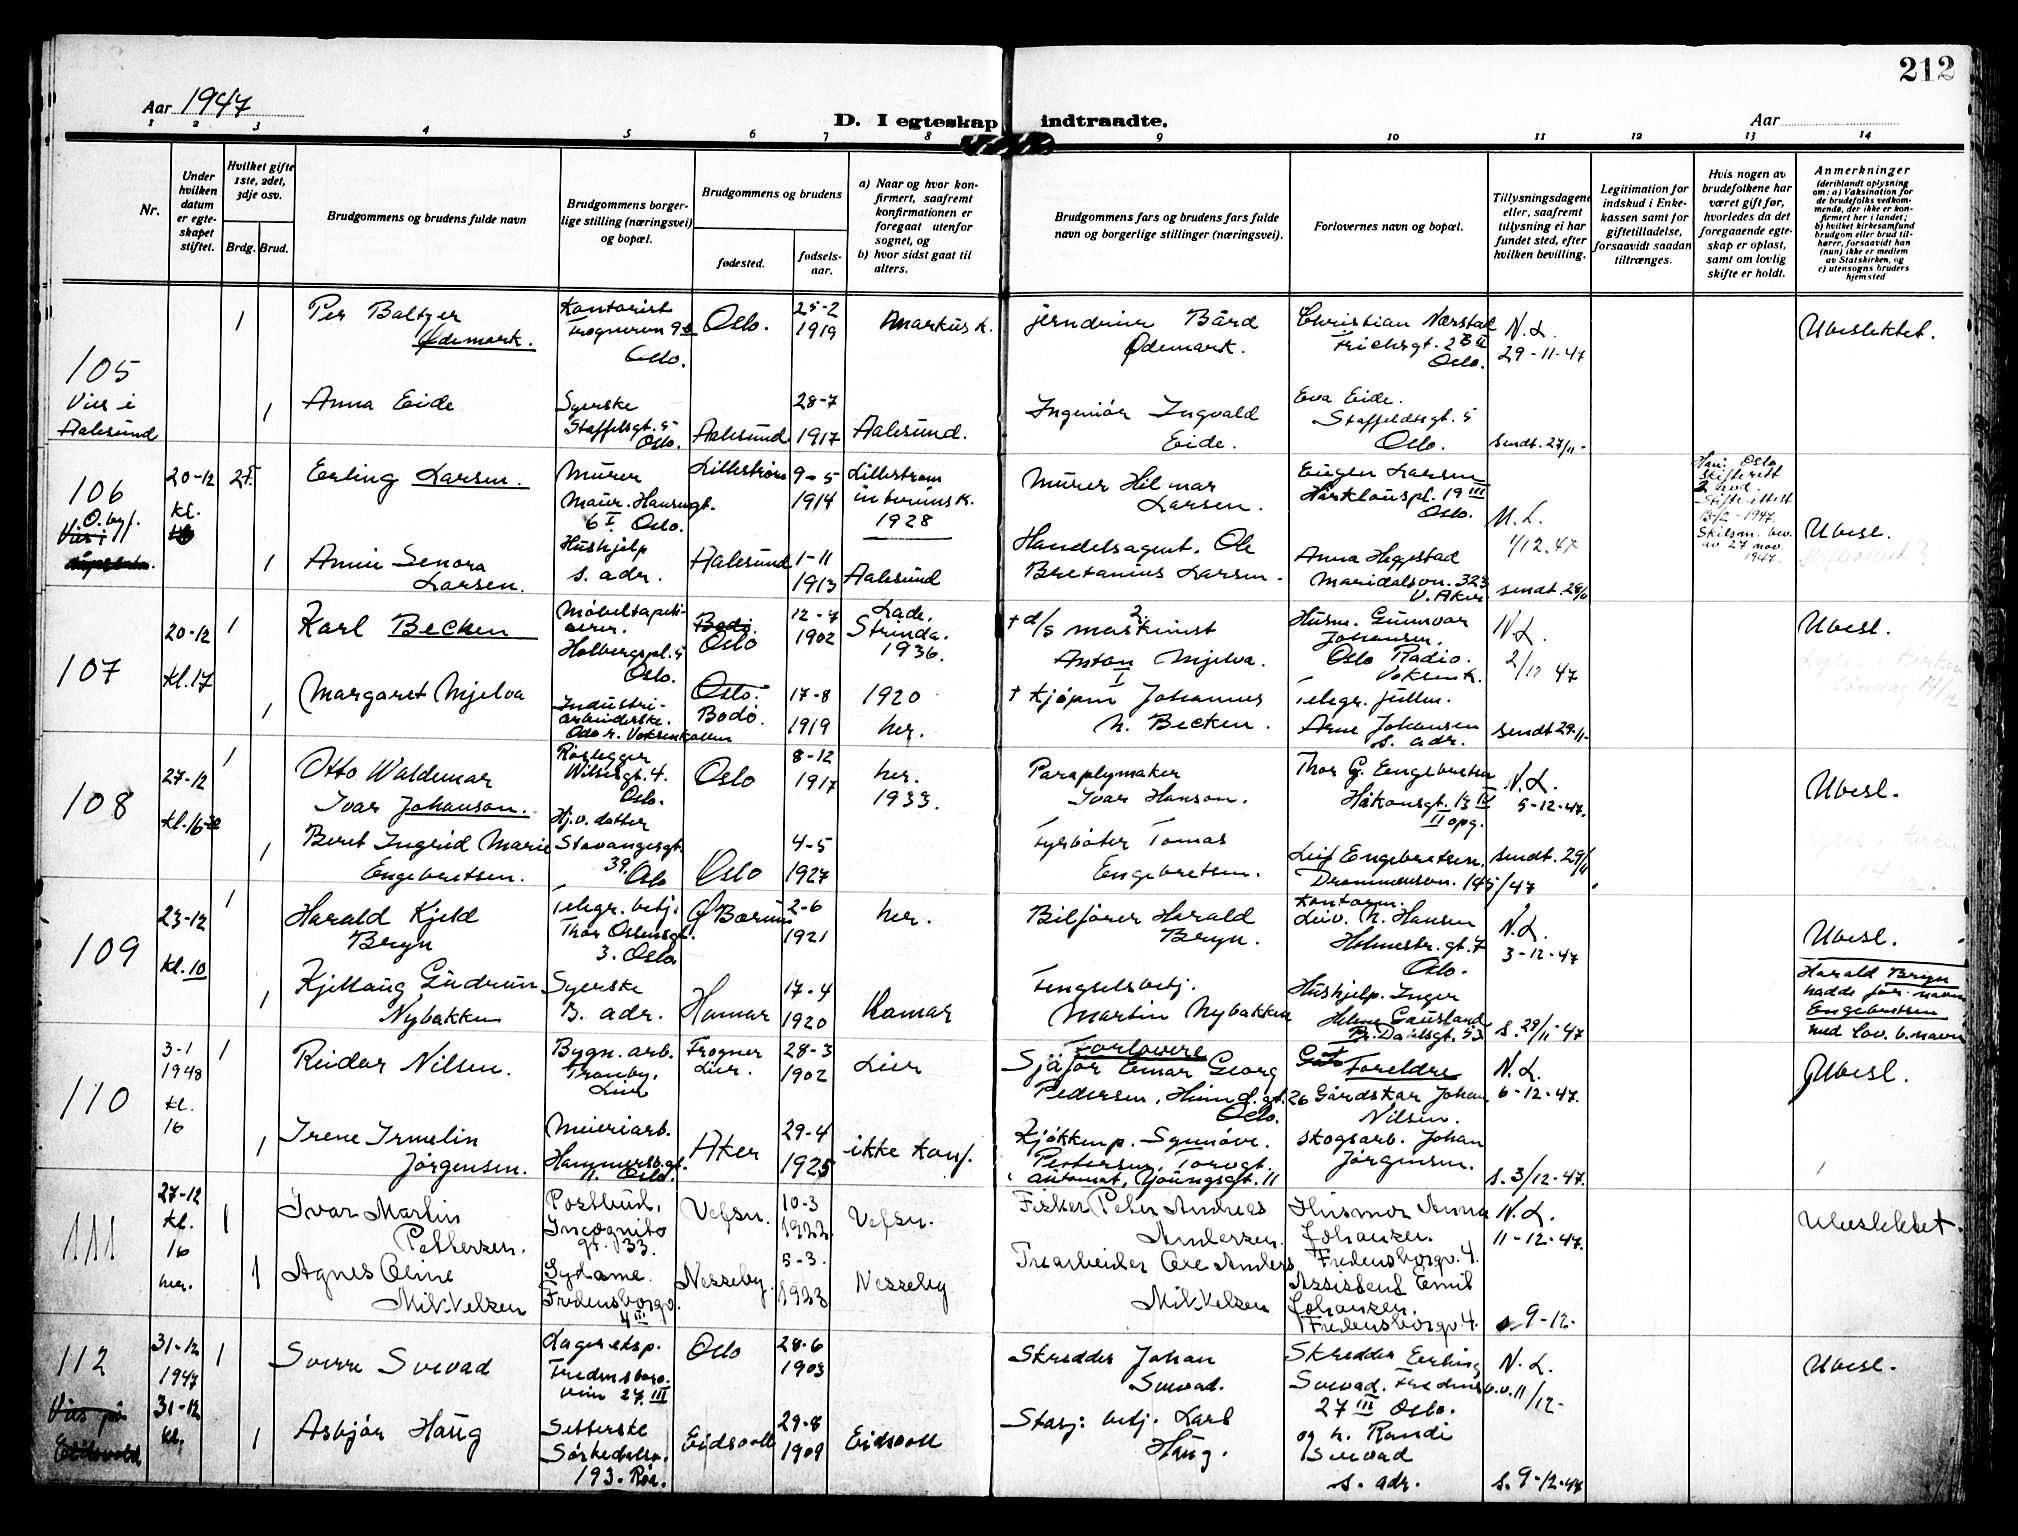 212
Aar 1947
D. I egteskap indtraadte.
Aar
1 2 3 4 5 6 7 8 9 10 11 12 13 14
Nr.
Under hvilken datum er egteskapet stiftet.
Hvilket gifte 1ste, 2det, 3dje osv.
Brdg. Brud.
Brudgommens og brudens fulde navn
Brudgommens borgerlige stilling (næringsvei) og bopæl.
Brudgommens og brudens
fødested.
fødselsaar.
a) Naar og hvor konfirmert, saafremt konfirmationen er foregaat utenfor sognet, og
b) hvor sidst gaat til alters.
Brudgommens fars og brudens fars fulde navn og borgerlige stillinger (næringsvei).
Forlovernes navn og bopæl.
Tillysningsdagene eller, saafremt tillysning ei har fundet sted, efter hvilken bevilling.
Legitimation for indskud i Enkekassen samt for giftetilladelse, forsaavidt saadan tiltrænges.
Hvis nogen av brudefolkene har været gift før, hvorledes da det foregaaende egteskap er opløst, samt om lovlig skifte er holdt.
Anmerkninger
(deriblandt oplysning om: a) Vaksination for de brudefolks vedkommende, der ikke er konfirmert her i landet;
b) hvilket kirkesamfund brudgom eller brud tilhører, forsaavidt han (hun) ikke er medlem av Statskirken, og
c) utensogns bruders hjemsted
105
Vies i
Aalesund
1
Per Baltzer
Ødemark.
Kontorist
Oslo.
Oslo.
25-2
1919
Markus k.
Bård
Ødemark.
Christian Nærstad
Oslo.
N.L.
29-11-47
Ubeslektet.
1
Anna Eide
Syerske
Staffelsgt. 5
Oslo.
Aalesund
28-7
1917
Aalesund.
Ingeniør Ingvald
Eide.
Eva Eide.
Staffeldtsgt. 5
Oslo.
sendt. 27/11-
106
O. byf.
20-12
kl.
2
Erling Larsen.
Murer
Maur. Hansengt.
6 I Oslo.
Lillestrøm
9-5
1914
Lillestrøm
interims k.
1928
Murer Hilmar
Larsen.
Eugen Larsen
19 III
Oslo.
1/12.47
Han: Oslo
skifterett
-1947
Skilsm. bev.
av 27 nov
1947.
Ubesl.
1
Annie Senora
Larsen.
Hushjelp
s. adr.
Aalesund
1-11
1913
Aalesund
Handelsagent. Ole
Bretanius Larsen.
Anna Hegestad
Maridalsvn. 323
V. Aker
107
20-12
kl. 17
1
Karl Becken
Møbeltapetserer.
Holbergspl. 5
Oslo.
Bodø
Oslo
12-4
1902
Lade.
Strinda.
1936.
† d/s maskinist
Anton Mjelva.
Husm. Gunvor
Johansen.
Oslo Radio.
Voksenk.
N.L.
2/12 47
Ubesl.
1
Margaret Mjelva
Industri-
arbeiderske.
Oslo r. Voksenkollen
Oslo.
Bodø.
17-8
1919
1920
her.
† Kjøpm Johannes
N. Becken.
Telegr. fullm.
Arne Johansen
s. adr.
sendt 29-11-
108
27-12
kl. 16 30
1
Otto Waldemar
Ivar Johanson.
Rørlegger
Nilsesgt. 4.
Oslo.
Oslo
8-12
1917
her.
1933.
Paraplymaker
Ivar Hanson.
Thor G. Engebretsen
Håkonsgt. 13 IV
II opg.
N.L.
5-12-47.
Ubesl.
1
Beret Ingrid Marie
Engebretsen.
Hj.v. datter
Stavangergt.
39. Oslo
Oslo
4-5
1927
Fyrbøter Tomas
Engebretsen.
Leif Engebretsen.
Drammensvn. 145
sendt. 29/11
/47
109
23-12
kl. 10
1
Harald Kjeld
Bryn
Telegr. betj.
Thor Olsensgt.
3. Oslo
Ø Bærum
2-6
1921
her.
Bilfører Harald
Bryn.
Kontorm.
Leiv. N. Hansen
Holmestr. gt. 7
Oslo.
N.L.
3-12-47
Ubesl.
Harald Bryn
hadde før navn
Engebretsen
med lov. b. navn
1
Kjellaug Gudrun
Nybakken
Syerske
B. adr.
Hamar
17-4
1920
Hamar
Fengselsbetj.
Martin Nybakken
Hushjelp. Inger
Helene Gausland
Pr. Dahlsgt. 53
s. 29/11-47
110
3-1
1948
kl.
16
1
Reidar Nilsen.
Bygn. arb.
Tranby,
Lier
Frogner
Lier.
28-3
1902
Lier
Forlovere
Sjåfør Einar Georg
Pedersen, gt. 26
Oslo.
Foreldre
Gårdskar Johan
Nilsen.
N.L.
6-12-47.
Ubesl.
1
Irene Irmelin
Jørgensen.
Meieriarb.
Oslo.
Aker
29-4
1925
ikke konf.
Kjøkkenp. Synnøve.
Pettersen. Torvgt.
automat, Youngsgt. 11
Skogsarb. Johan
Jørgensen.
s. 3/12-47.
111
27-12
kl.
16
her.
1
Ivar Martin
Pettersen.
Postbud,
Incognito
gt. 33.
Vefsn.
10-3
1922
Vefsn.
Fisker Peter Andreas
Andersen.
Husmor Anna
Johansen.
Fredensborgv. 4.
N.L.
11-12-47.
Ubeslektet.
1
Agnes Oline
Mikkelsen
Sydame.
Fredensborgv.
4 III
Nesseby.
5-3.
1923
Nesseby
Trearbeider Ole Anders
Mikkelsen
Assistent Emil
Johansen.
Fredensborgv. 4.
s. 9-12-
112
31-12
1947
31-12
kl.
1
Sverre Svevad
Lagereksp.
Fredensborg-
vein 27 III
Oslo
28-6
1903
Skredder Johan
Svevad.
Skredder Erling
Svevad.
27 III Oslo.
N.L.
Ubesl.
1
Asbjør Haug
Setterske
Sørkedalsv.
193. Røa.
Eidsvoll
29-8
1909
Eidsvoll
Stasj. betj. Karl
Haug.
og h. Randi
Svevad
s. adr.
s. 9-12-47